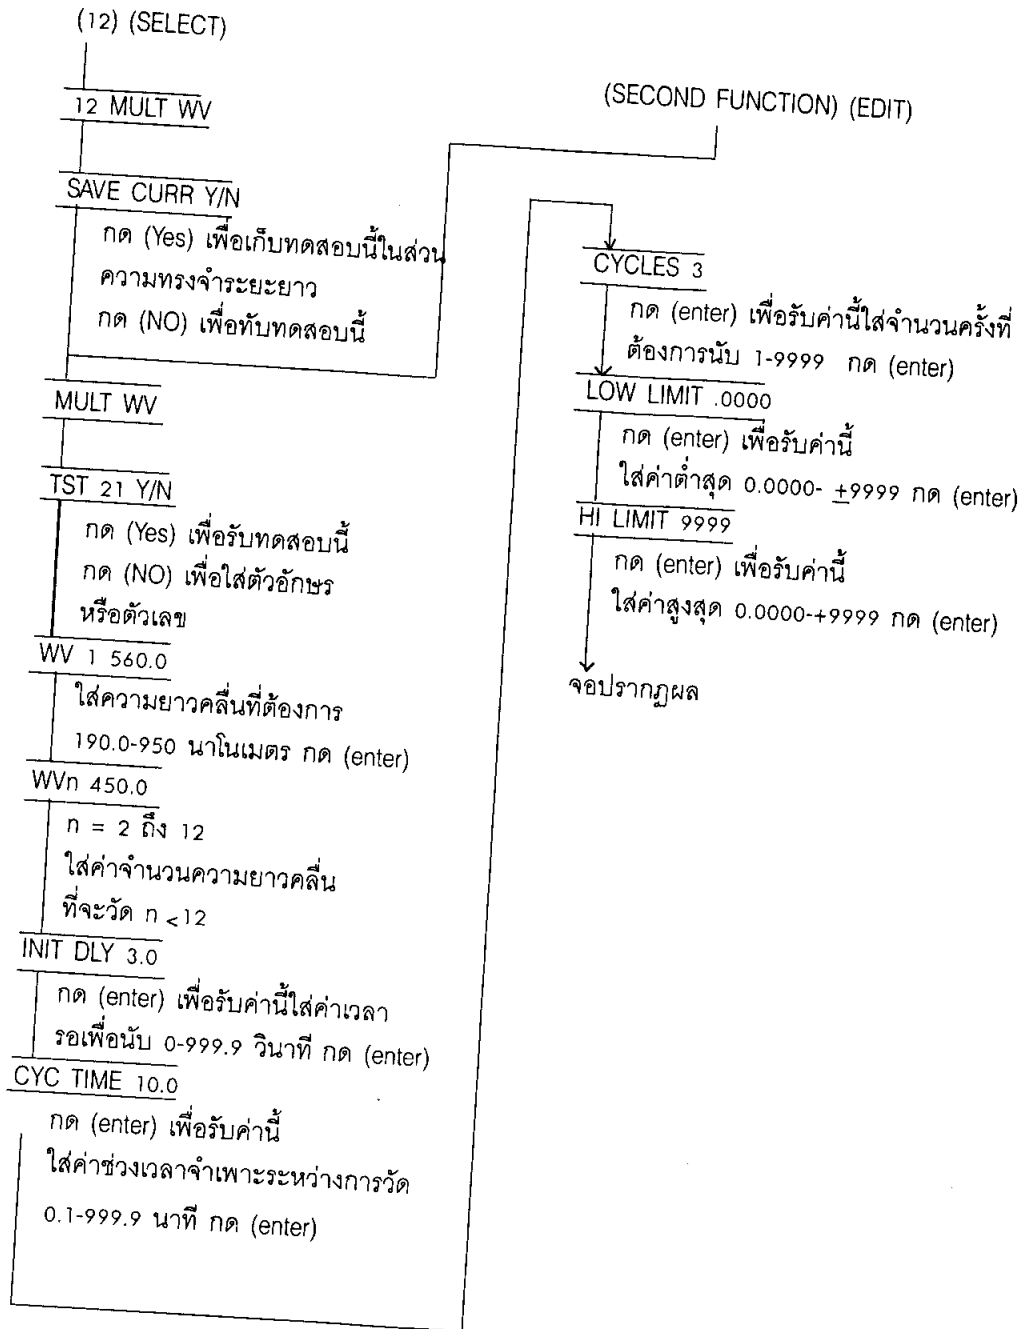 (12) (SELECT)
12 MULT WV
SAVE CURR Y/N
กด (Yes) เพื่อเก็บทดสอบนี้ในส่วน
ความทรงจำระยะยาว
กด (NO) เพื่อทับทดสอบนี้
MULT WV
TST 21 Y/N
กด (Yes) เพื่อรับทดสอบนี้
กด (NO) เพื่อใส่ตัวอักษร
หรือตัวเลข
WV 1 560.0
ใส่ความยาวคลื่นที่ต้องการ
190.0-950 นาโนเมตร กด (enter)
WVn 450.0
n = 2 ถึง 12
ใส่ค่าจำนวนความยาวคลื่น
ที่จะวัด n <12
INIT DLY 3.0
กด (enter) เพื่อรับค่านี้ใส่ค่าเวลา
รอเพื่อนับ 0-999.9 วินาที กด (enter)
CYC TIME 10.0
กด (enter) เพื่อรับค่านี้
ใส่ค่าช่วงเวลาจำเพาะระหว่างการวัด
0.1-999.9 นาที กด (enter)
(SECOND FUNCTION) (EDIT)
CYCLES 3
กด (enter) เพื่อรับค่านี้ใส่จำนวนครั้งที่
ต้องการนับ 1-9999 กด (enter)
LOW LIMIT .0000
กด (enter) เพื่อรับค่านี้
ใส่ค่าต่ำสุด 0.0000- ±9999 กด (enter)
HI LIMIT 9999
กด (enter) เพื่อรับค่านี้
ใส่ค่าสูงสุด 0.0000-+9999 กด (enter)
จอปรากฏผล